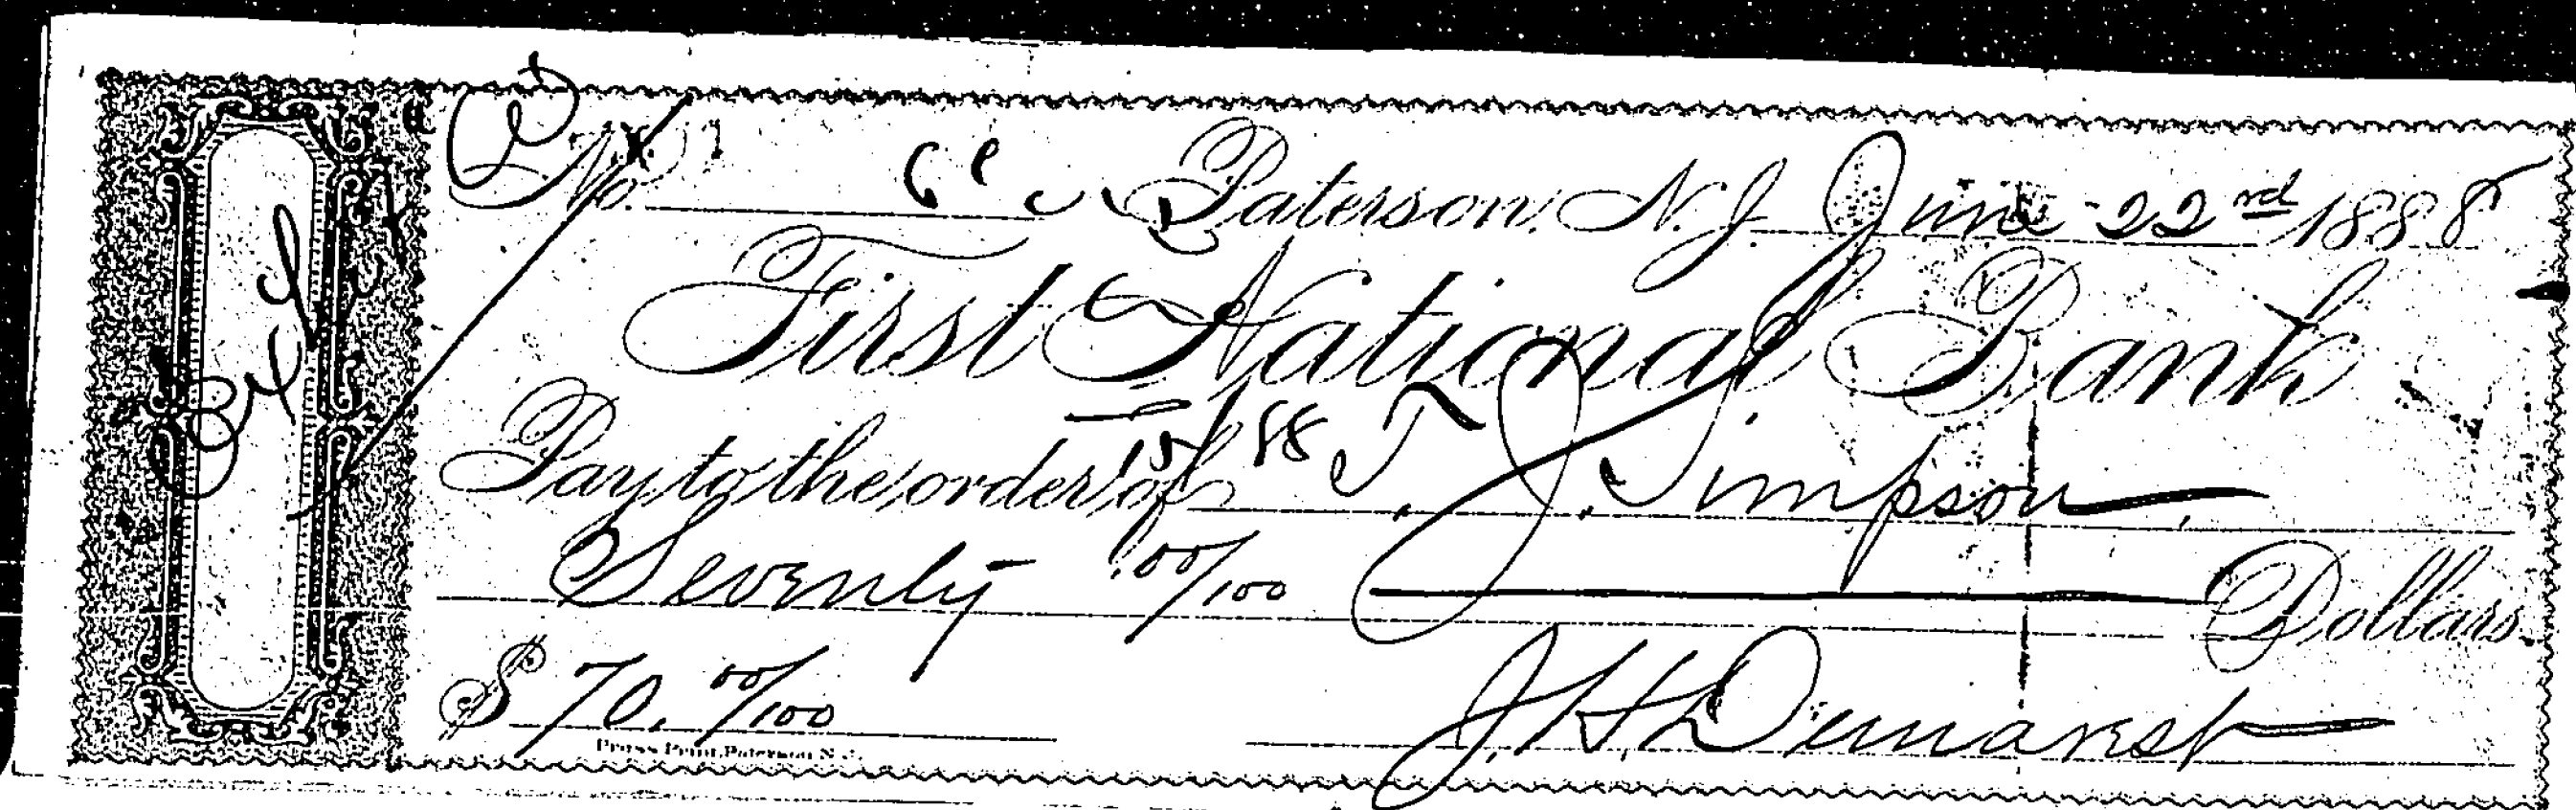 No. Paterson, N. J. June 22nd 1888
First National Bank
Pay to the order of T. J. Simpson
Seventy 00/100 Dollars.
$ 70. 00/100 J. H. Demarest
Press Print, Paterson N. J.